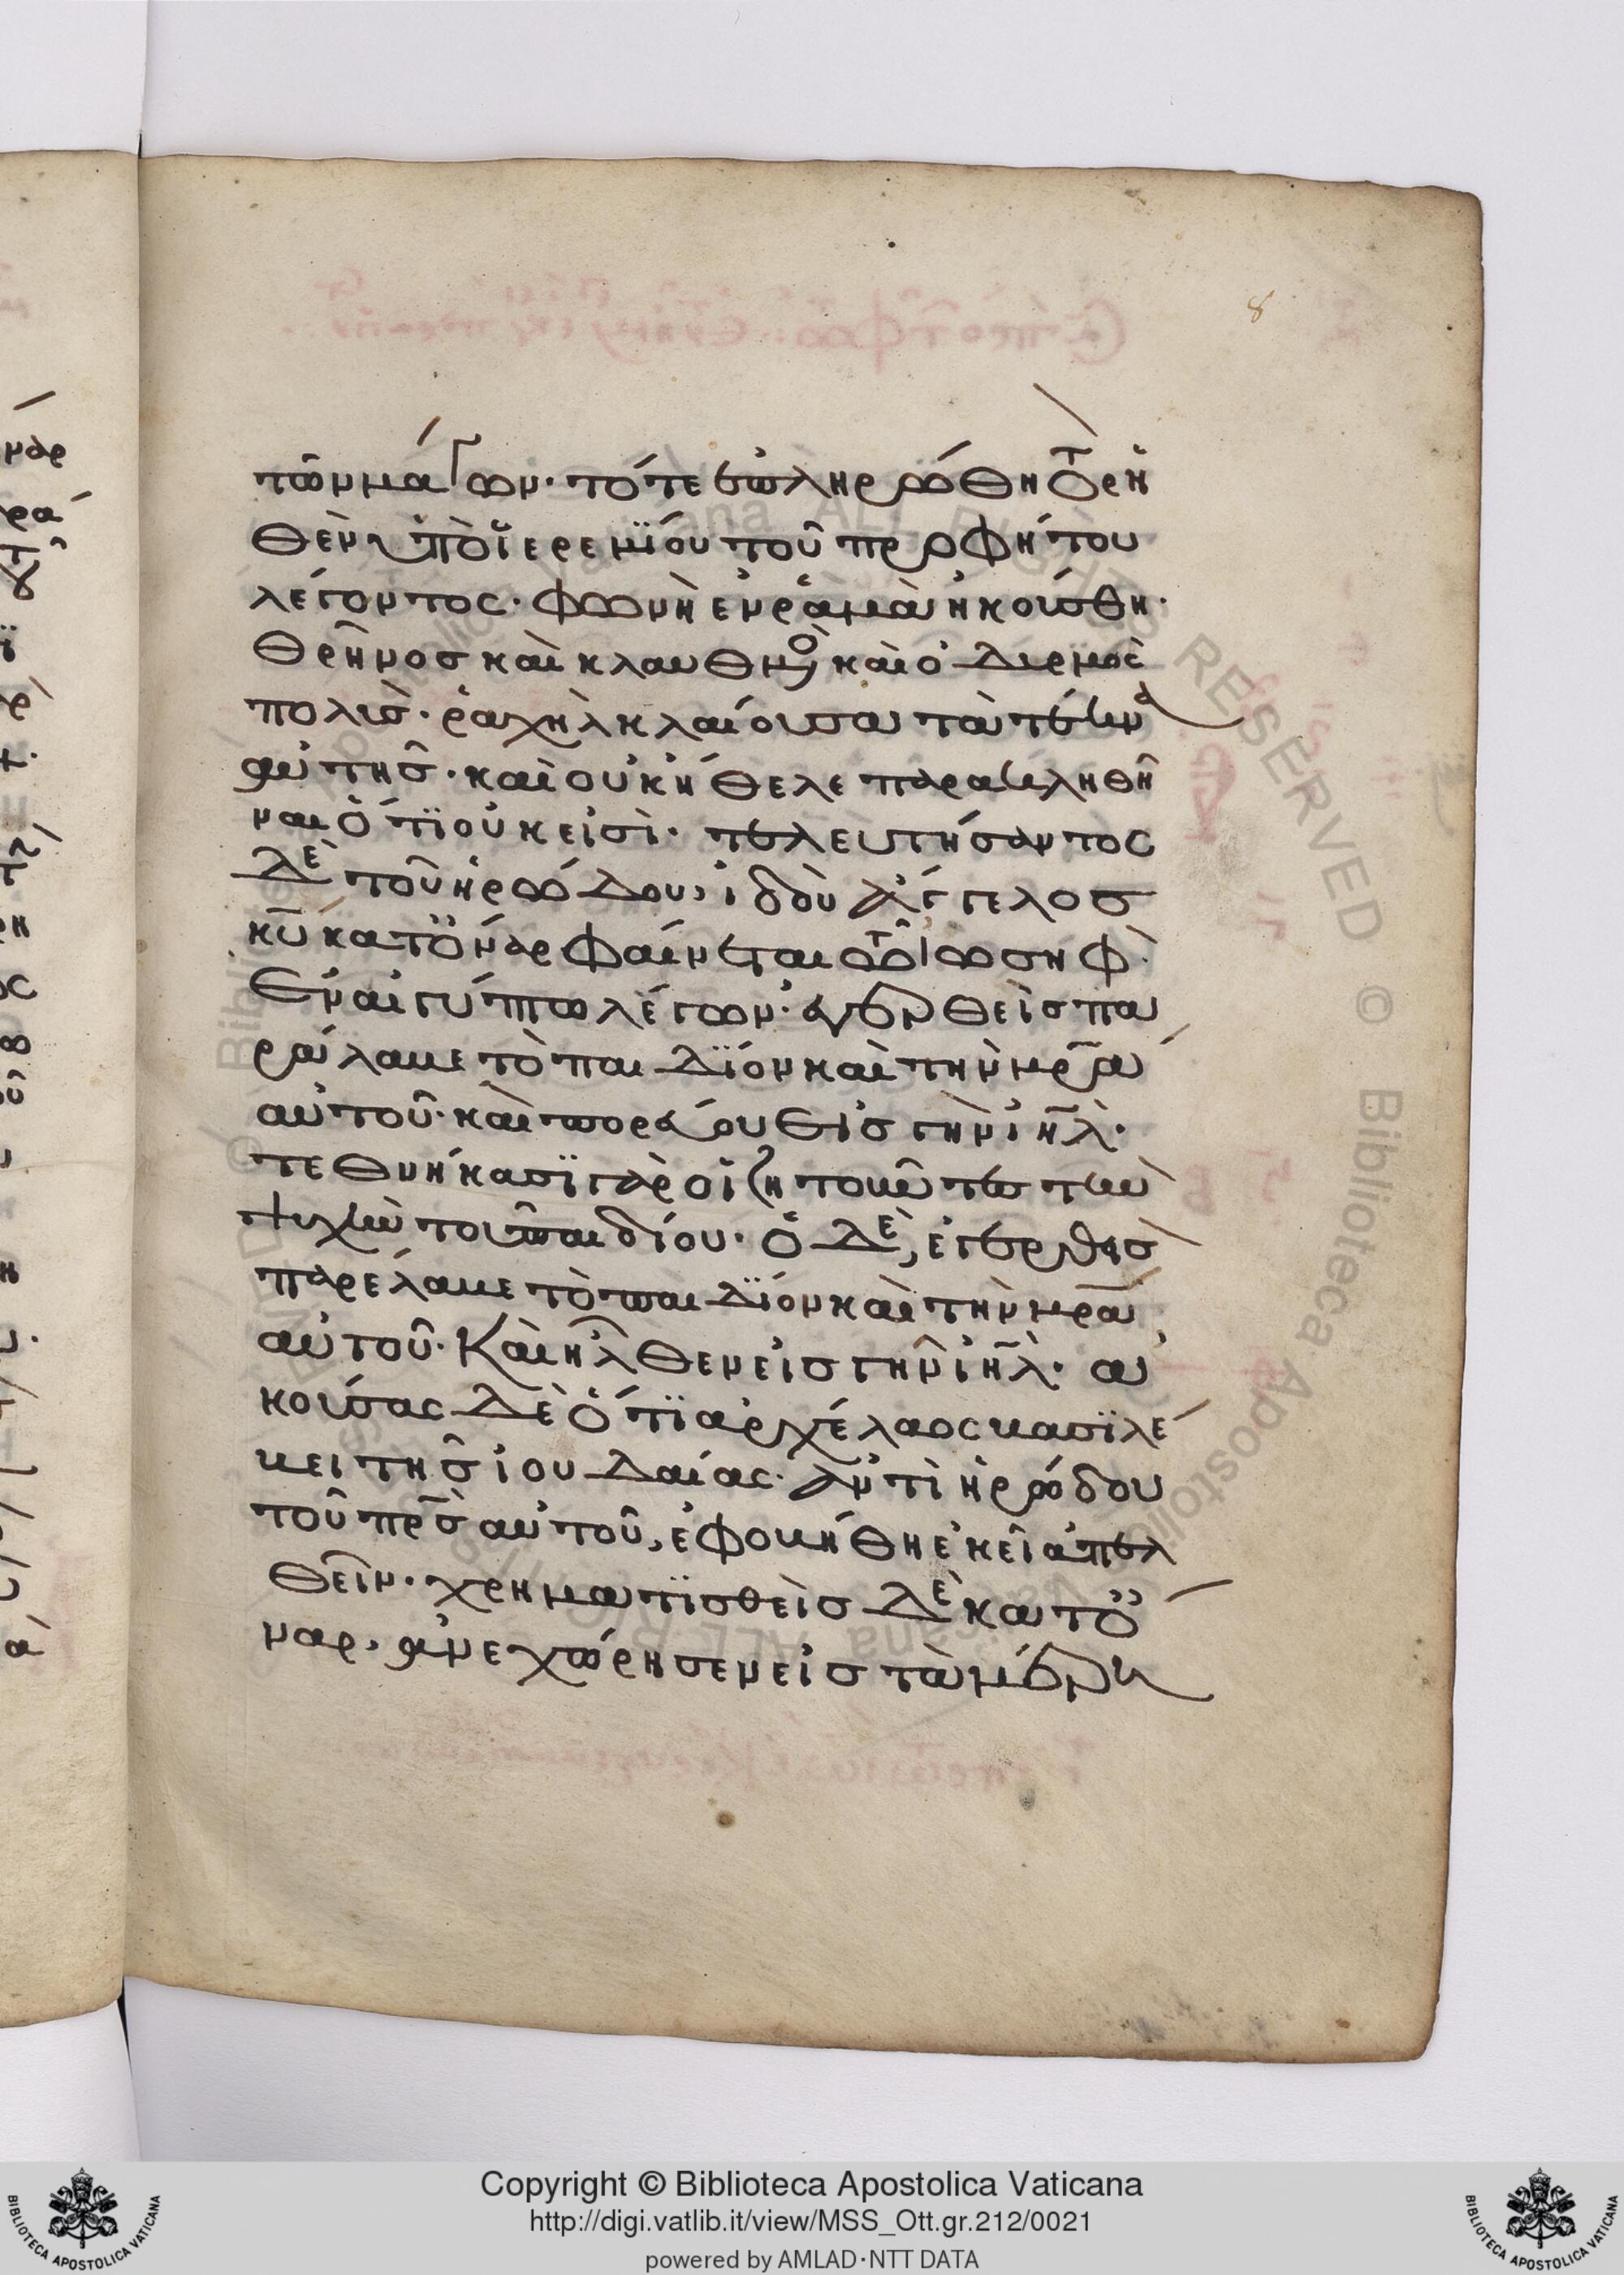 τῶν μάγων· τότε ἐπληρώθη τὸ ῥη
θὲν ὑπὸ ἰερεμίου τοῦ προφήτου
λέγοντος· φωνὴ ἐν ῥαμὰ ἠκούσθη·
θρῆνος καὶ κλαυθμὸς καὶ ὀδυρμὸς
πολὺς· ῥαχὴλ κλαίουσα τὰ τέκνα
αὐτῆς· καὶ οὐκ ἤθελε παρακληθῆ
ναι ὅτι οὐκ εἰσὶ· τελευτήσαντος
δὲ τοῦ ἡρώδου, ἰδοὺ ἄγγελος
κῡ κατ ὄναρ φαίνεται τῶ ἰωσὴφ·
ἐν αἰγύπτω λέγων· ἐγερθεὶς πα
ράλαβε τὸ παιδίον καὶ τὴν μρ̄α
αὐτοῦ· καὶ πορεύου εἰς γῆν ἰηλ̄·
τεθνήκασι γὰρ οἱ ζητοῦντες τὴν
ψυχὴν τοῦ παιδίου· ὁ δὲ, ἐγερθεὶς
παρέλαβε τὸ παιδίον καὶ τὴν μρ̄α
αὐτοῦ· Καὶ ἦλθεν εἰς γῆν ἰηλ̄· ἀ
κούσας δὲ ὅτι ἀρχέλαος βασιλέ
βει τῆς ἰουδαίας· ἀντὶ ἡρώδου
τοῦ πρ̄ς αὐτοῦ, ἐφοβήθη ἐκεῖ ἀπελ
θεῖν· χρηματισθεὶς δὲ κατ ὄ
ναρ, ἀνεχώρησεν εἰς τὰ μέρη
8
Copyright © Biblioteca Apostolica Vaticana
http://digi.vatlib.it/view/MSS_Ott.gr.212/0021
powered by AMLAD·NTT DATA